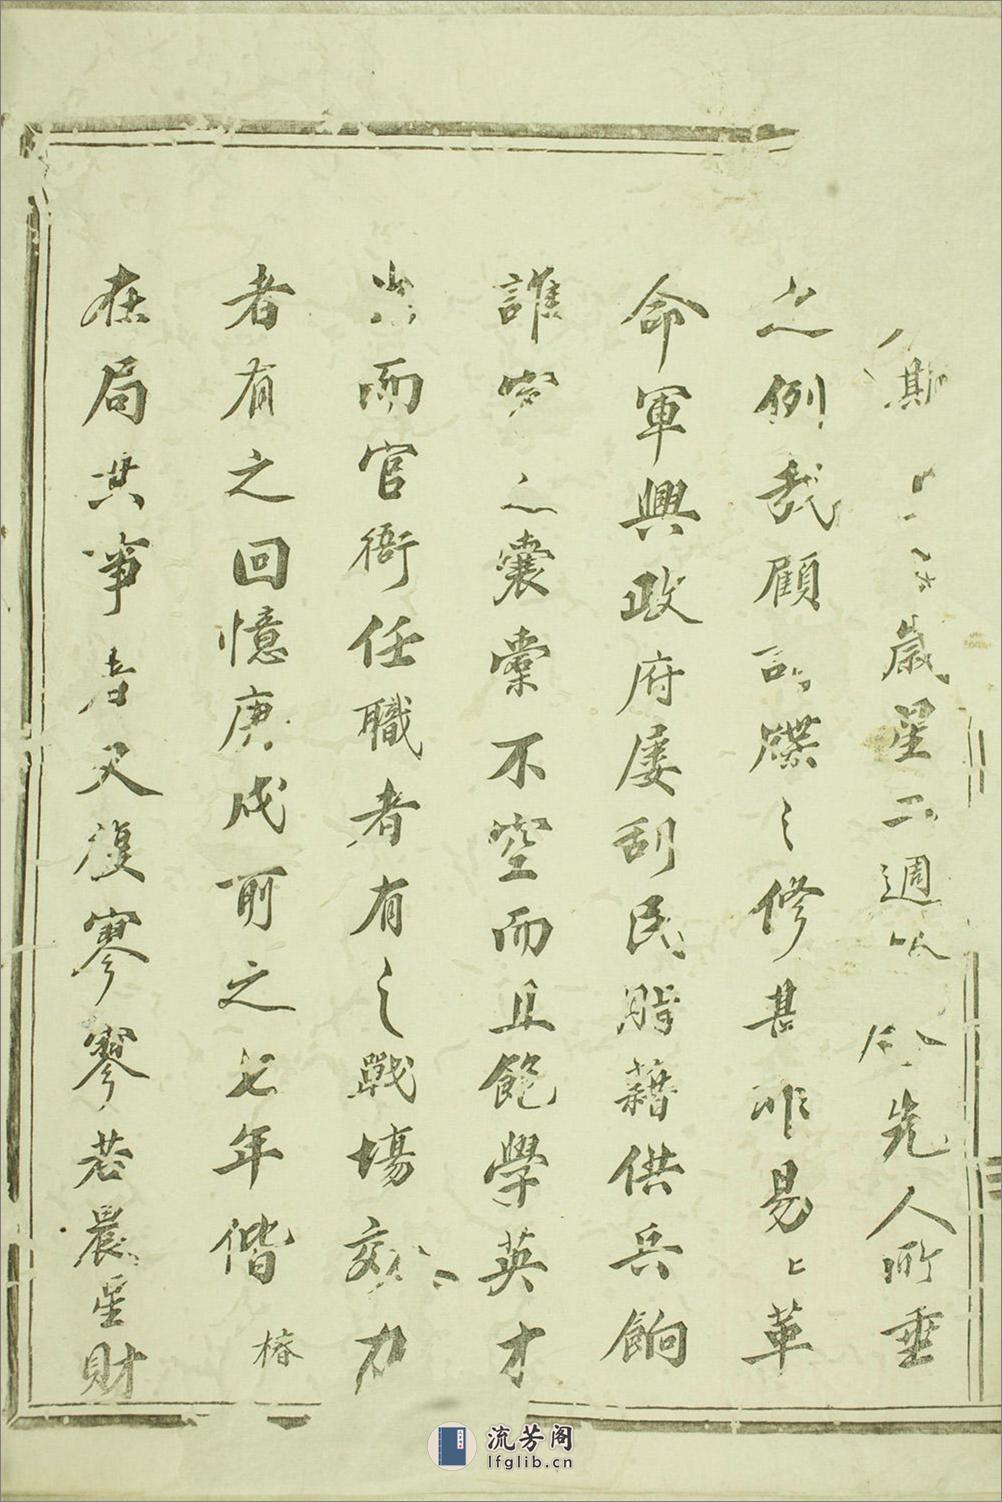 斯歲星二週以先人所垂
之例我顧譜牒之修甚非易易上革
命軍興政府屢刮民脂藉供兵餉
誰家之囊橐不空而且飽學英才
出而官衙任職者有之戰塲効力
者有之回憶庚戌前之七年偕椿
在局共事者又復寥寥若晨星財
流芳阁
lfglib.cn